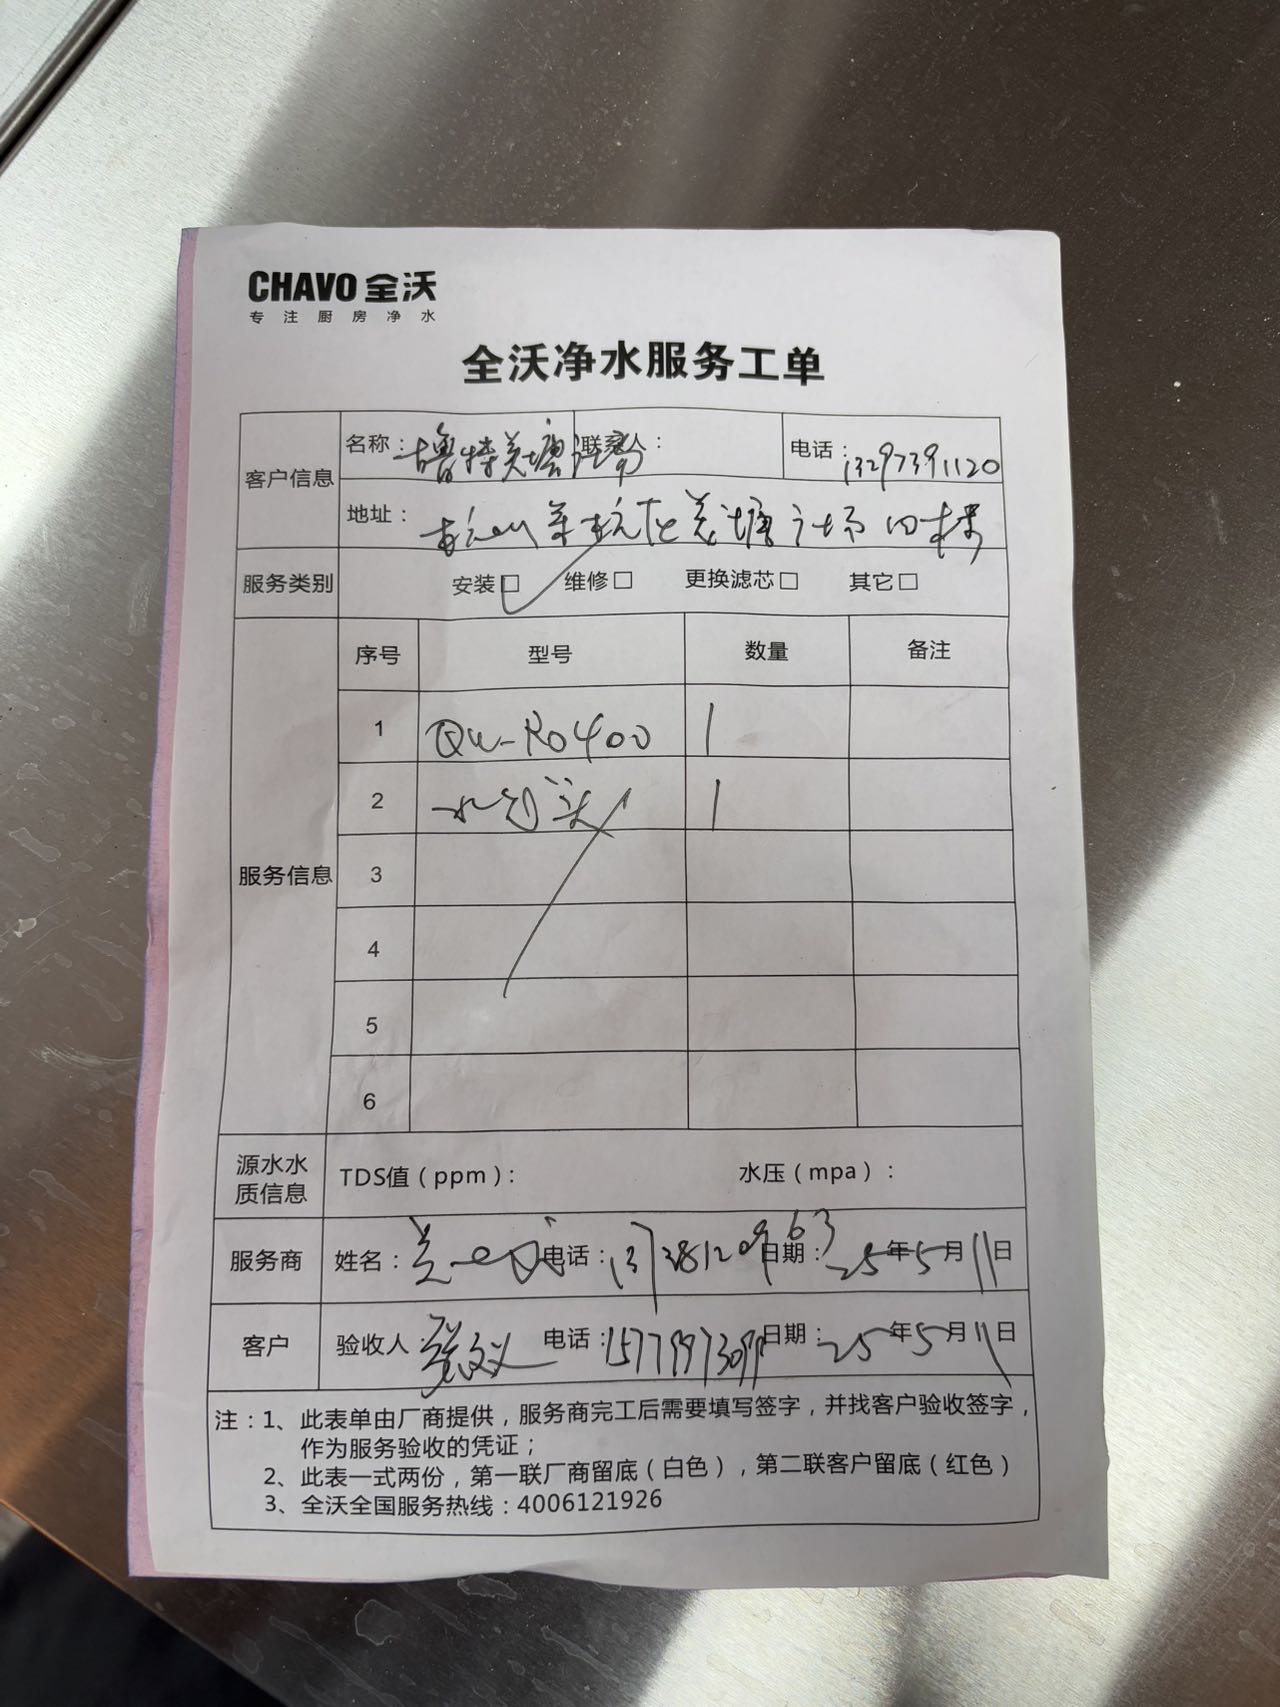 CHAVO 全沃
专注厨房净水
全沃净水服务工单
客户信息
名称： 联系人： 电话：13297391120
地址：
服务类别 安装☑ 维修□ 更换滤芯□ 其它□
服务信息
序号 型号 数量 备注
1 QW-RO400 1
2 水龙头 1
3
4
5
6
源水水质信息 TDS值（ppm）： 水压（mpa）：
服务商 姓名： 电话： 日期：25年5月11日
客户 验收人： 电话： 日期：25年5月11日
注：1、此表单由厂商提供，服务商完工后需要填写签字，并找客户验收签字，
作为服务验收的凭证；
2、此表一式两份，第一联厂商留底（白色），第二联客户留底（红色）
3、全沃全国服务热线：4006121926